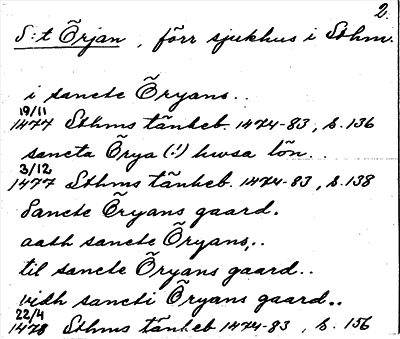 2.
S:t Örjan, förr sjukhus i Sthm.
i sancte Öryans..
19/11
1477 Sthms tänkeb. 1474-83, s. 136
sancta Örya (!) hwsa lön..
3/12
1477 Sthms tänkeb. 1474-83, s. 138
Sancte Öryans gaard.
aath sancte Öryans,..
til sancte Öryans gaard..
vidh sancti Öryans gaard..
22/4
1478 Sthms tänkeb. 1474-83, s. 156